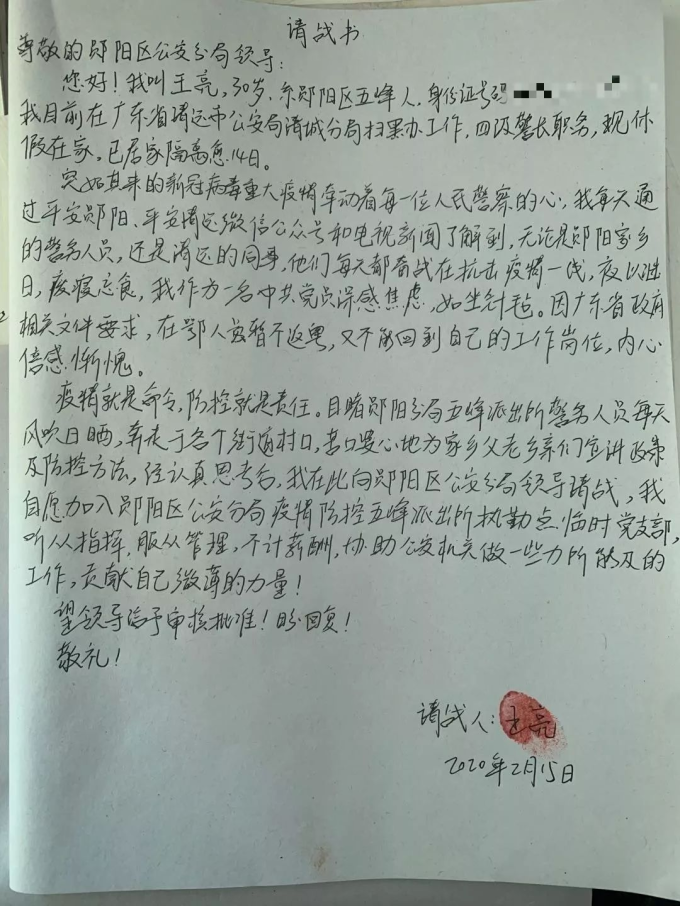 请战书
尊敬的郧阳区公安分局领导:
您好!我叫王亮,30岁,系郧阳区五峰人,身份证号码
我目前在广东省清远市公安局清城分局扫黑办工作,四级警长职务,现休
假在家,已居家隔离愈14日。
突如其来的新冠病毒重大疫情牵动着每一位人民警察的心,我每天通
过平安郧阳、平安清远微信公众号和电视新闻了解到,无论是郧阳家乡
的警务人员,还是清远的同事,他们每天都奋战在抗击疫情一线,夜以继
日,废寝忘食,我作为一名中共党员深感焦虑,如坐针毡。因广东省政府
相关文件要求,在鄂人员暂不返粤,又不能回到自己的工作岗位,内心
倍感惭愧。
疫情就是命令,防控就是责任。目睹郧阳分局五峰派出所警务人员每天
风吹日晒,奔走于各个街道村口,苦口婆心地为家乡父老乡亲们宣讲政策
及防控方法,经认真思考后,我在此向郧阳区公安分局领导请战,我
自愿加入郧阳区公安分局疫情防控五峰派出所执勤点临时党支部,
听从指挥,服从管理,不计薪酬,协助公安机关做一些力所能及的
工作,贡献自己微薄的力量!
望领导给予审核批准!盼回复!
敬礼!
请战人:王亮
2020年2月15日